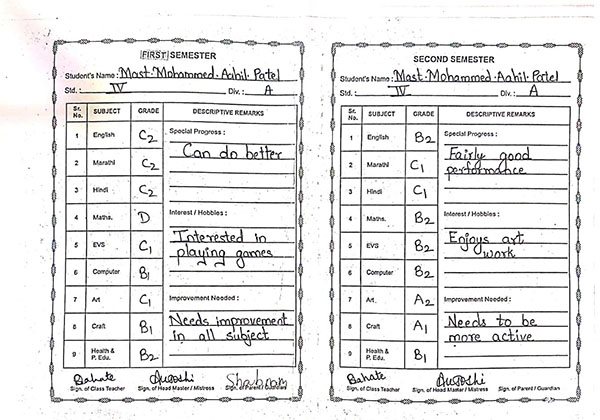 FIRST SEMESTER
Student's Name : Mast. Mohammed. Aahil. Patel
Std. : IV Div. : A
Sr. No. SUBJECT GRADE DESCRIPTIVE REMARKS
1 English C2 Special Progress :
Can do better
2 Marathi C2
3 Hindi C2
4 Maths. D Interest / Hobbies :
Interested in
5 EVS C1 playing games
6 Computer B1
7 Art C1 Improvement Needed :
8 Craft B1 Needs improvement
in all subject
9 Health & P. Edu. B2
Sign. of Class Teacher Sign. of Head Master / Mistress Sign. of Parent / Guardian
SECOND SEMESTER
Student's Name : Mast. Mohammed. Aahil. Patel
Std. : IV Div. : A
Sr. No. SUBJECT GRADE DESCRIPTIVE REMARKS
1 English B2 Special Progress :
Fairly good
2 Marathi C1 performance
3 Hindi C1
4 Maths. B2 Interest / Hobbies :
5 EVS B2 Enjoys art
work
6 Computer B2
7 Art A2 Improvement Needed :
8 Craft A1 Needs to be
more active
9 Health & P. Edu. B1
Sign. of Class Teacher Sign. of Head Master / Mistress Sign. of Parent / Guardian